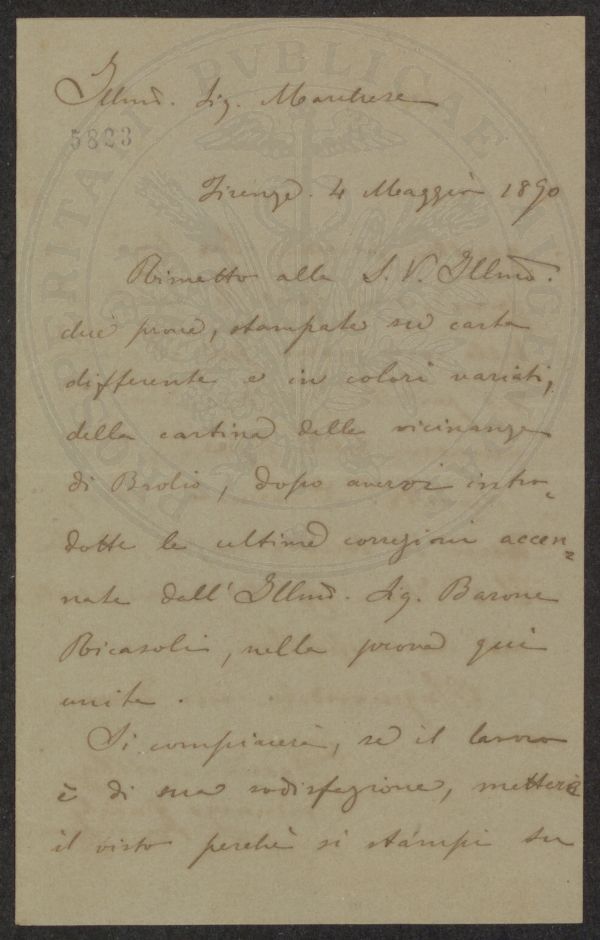 Illmo. Sig. Marchese
5823
Firenze. 4 Maggio 1890
Rimetto alla S. V. Illma.
due prove, stampate su carta
differente e in colori variati,
della cartina delle vicinanze
di Brolio, dopo avervi intro=
dotte le ultime correzioni accen=
nate dall' Illmo. Sig. Barone
Ricasoli, nella prova qui
unita.
Si compiacerà, se il lavoro
è di sua sodisfazione, mettervi
il visto perchè si stampi su